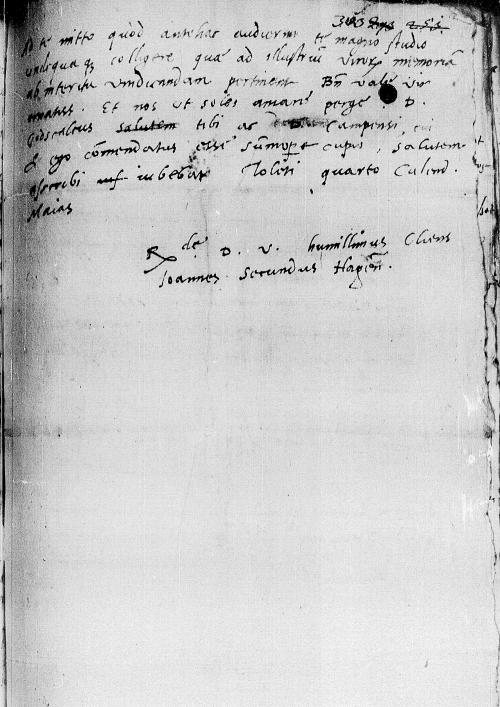 303 255
te mitto quod antehac audierim te magno studio
undequaq; colligere quæ ad illustriũ virorũ memoriã
ab interitu vindicandam pertinent Bñ vale vir
ornatiss. Et nos ut soles amare perge D.
Godscalcus salutem tibi ac D. Campensi, cui
& ego cõmendatus esse sũmopere cupio, salutem
ascribi iubebat Toleti quarto Calend.
Maias
R.de D. V. humillimus Cliens
Ioannes Secundus Hagieñ.